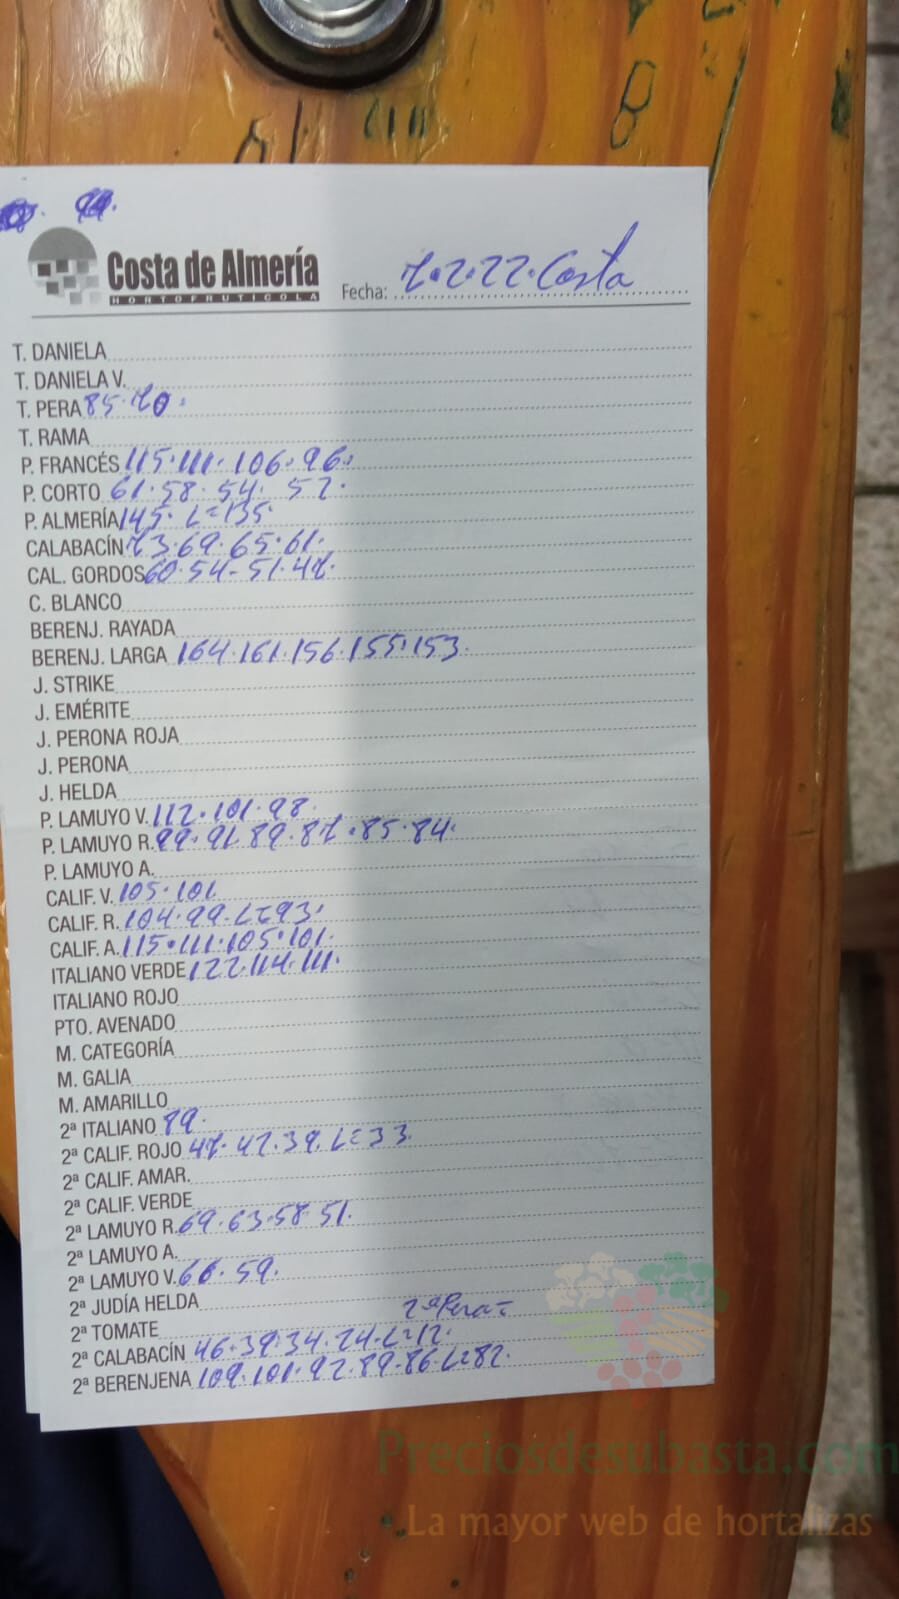 Costa de Almería
HORTOFRUTICOLA
Fecha: 7.2.22.Costa
T. DANIELA
T. DANIELA V.
T. PERA 85.70.
T. RAMA
P. FRANCÉS 115.111.106.96.
P. CORTO 61.58.54. 52.
P. ALMERÍA 145. L=135.
CALABACÍN 73.69.65.61.
CAL. GORDOS 60.54-51.47.
C. BLANCO
BERENJ. RAYADA
BERENJ. LARGA 164.161.156.155.153.
J. STRIKE
J. EMÉRITE
J. PERONA ROJA
J. PERONA
J. HELDA
P. LAMUYO V. 112.101.98.
P. LAMUYO R. 99.91.89.87.85.84.
P. LAMUYO A.
CALIF. V. 105.101.
CALIF. R. 104.99.L=93.
CALIF. A. 115.111.105.101.
ITALIANO VERDE 122.114.111.
ITALIANO ROJO
PTO. AVENADO
M. CATEGORÍA
M. GALIA
M. AMARILLO
2ª ITALIANO 89.
2ª CALIF. ROJO 47.42.39.L=33.
2ª CALIF. AMAR.
2ª CALIF. VERDE
2ª LAMUYO R. 69.63.58.51.
2ª LAMUYO A.
2ª LAMUYO V. 66.59.
2ª JUDÍA HELDA
2ª TOMATE 2ªPera=
2ª CALABACÍN 46.39.34.24.L=12.
2ª BERENJENA 109.101.92.89.86.L=82.
Preciosdesubasta.com
La mayor web de hortalizas